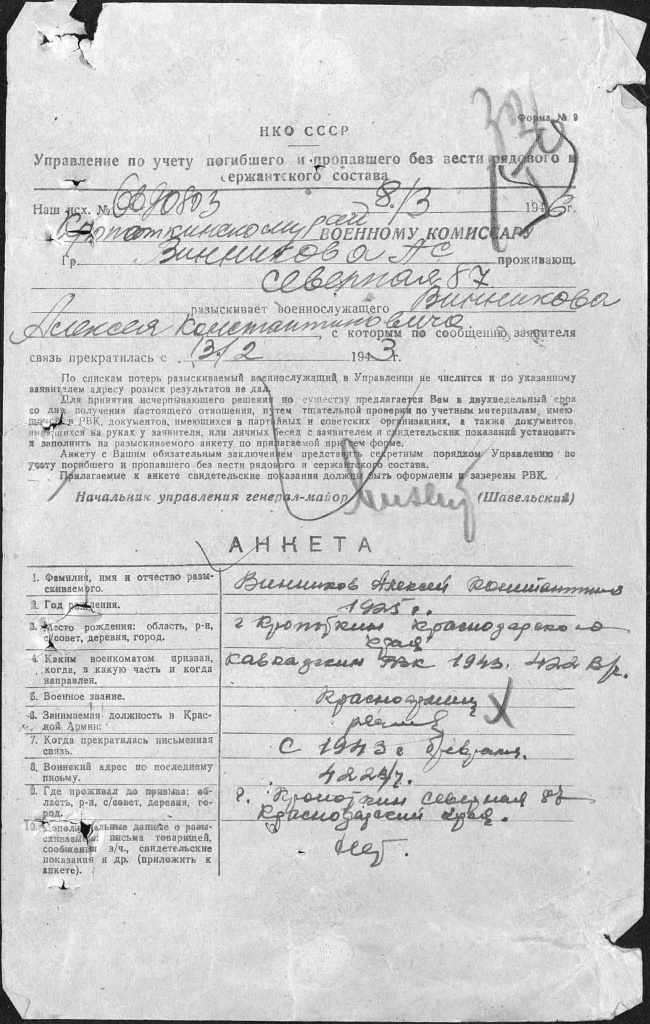 Форма № 9
НКО СССР
Управление по учету погибшего и пропавшего без вести рядового и
сержантского состава
Наш исх. № 8/3 1946г.
Кропоткинскому рай ВОЕННОМУ КОМИССАРУ
Гр. Винникова А С проживающ.
Северная 87
разыскивает военнослужащего Винникова
Алексея Константиновича, с которым по сообщению заявителя
связь прекратилась с 13/2 1943г.
По спискам потерь разыскиваемый военнослужащий в Управлении не числится и по указанному
заявителем адресу розыск результатов не дал.
Для принятия исчерпывающего решения по существу предлагается Вам в двухнедельный срок
со дня получения настоящего отношения, путем тщательной проверки по учетным материалам, имею
щимся в РВК, документов, имеющихся в партийных и советских организациях, а также документов,
имеющихся на руках у заявителя, или личных бесед с заявителем и свидетельских показаний установить
и заполнить на разыскиваемого анкету по прилагаемой при сем форме.
Анкету с Вашим обязательным заключением представить секретным порядком Управлению по
учету погибшего и пропавшего без вести рядового и сержантского состава.
Прилагаемые к анкете свидетельские показания должны быть оформлены и заверены РВК.
Начальник управления генерал-майор (Шавельский)
АНКЕТА
1. Фамилия, имя и отчество разы-
скиваемого.
Винников Алексей
2. Год рождения.
1925 г.
3. Место рождения: область, р-н,
с/совет, деревня, город.
г Кропоткин Краснодарского
края
4. Каким военкоматом призван,
когда, в какую часть и когда
направлен.
РВК 1943. 422
5. Военное звание.
Красноармеец
6. Занимаемая должность в Крас-
ной Армии:
7. Когда прекратилась письменная
связь.
С 1943 г февраля.
8. Воинский адрес по последнему
письму.
9. Где проживал до призыва: об-
ласть, р-н, с/совет, деревня, го-
род.
г. Кропоткин Северная 87
Краснодарский край.
10. Дополнительные данные о разы-
скиваемом письма товарищей,
сообщения в/ч., свидетельские
показания и др. (приложить к
анкете).
Нет.